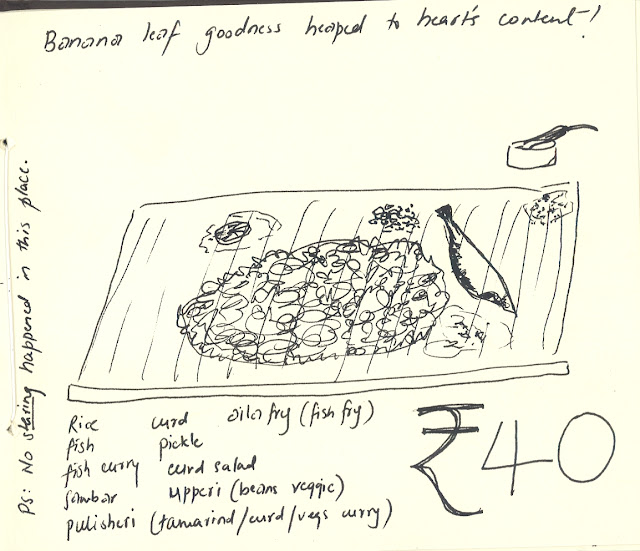 Banana leaf goodness heaped to heart's content!
PS: No sharing happened in this place.
Rice curd aila fry (fish fry)
fish pickle
fish curry curd salad
Sambar upperi (beans veggie)
pulisheri (tamarind/curd/vegs curry)
₹40